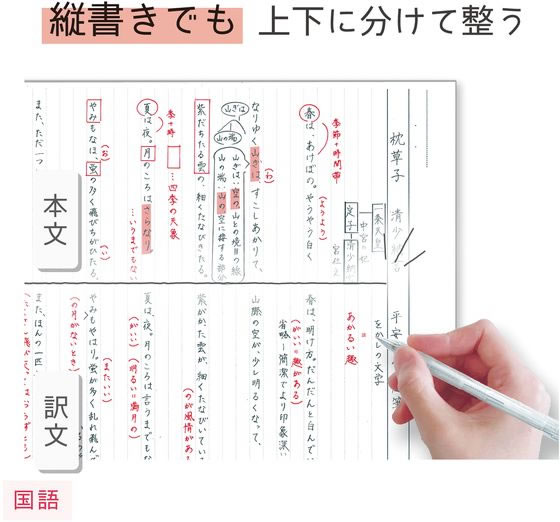 縦書きでも 上下に分けて整う
枕草子 清少納言
平安
をかしの文学
あかるい趣
一条天皇
中宮
定子
清少納言
宮仕え
季節+時間帯
春は、あけぼの。やうやう白く
(ようよう)
なりゆく山ぎは、すこしあかりて、
(わ)
山ぎは
山の端
山ぎは:空の山との境目の線
山の端:山の空に接する部分
紫だちたる雲の、細くたなびきたる。
季+時
…四季の天象
夏は、夜。月のころはさらなり。
…いうまでもない
やみもなほ、蛍の多く飛びちがひたる。
(お)
(い)
また、ただ一つ
本文
春は、明け方。だんだんと白んで
(がいい=趣がある)
省略…簡潔でより印象深い
山際の空が、少し明るくなって、
紫がかた雲が、細くたなびいてい
(のが風情がある
夏は、夜。月のころは言うまでもな
(がいい)
(明るい=満月の)
やみもやはり。蛍が多く乱れ飛んで
(またいい)
(の月がないとき)
また、ほんの一匹
訳文
国語